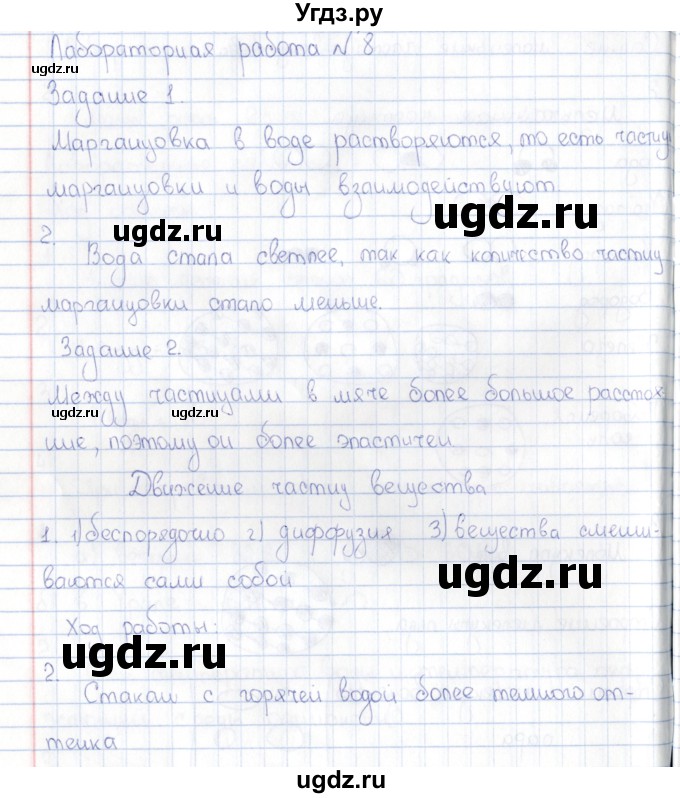 Угдз.ру
Лабораторная работа №8
ugdz.ru
Задание 1.
Марганцовка в воде растворяются, то есть частиц
марганцовки и воды взаимодействуют
ugdz.ru
ugdz.ru
2.
Вода стала светлее, так как количество частиц
марганцовки стало меньше.
Задание 2.
Между частицами в мяче более большое расстоя-
ugdz.ru ugdz.ru
ние, поэтому он более эластичен
Движение частиц вещества
1. 1) беспорядочно 2) диффузия 3) вещества смеши-
ugdz.ru
ваются сами собой
Ход работы:
ugdz.ru
2.
Стакан с горячей водой более темного от-
тенка
ugdz.ru